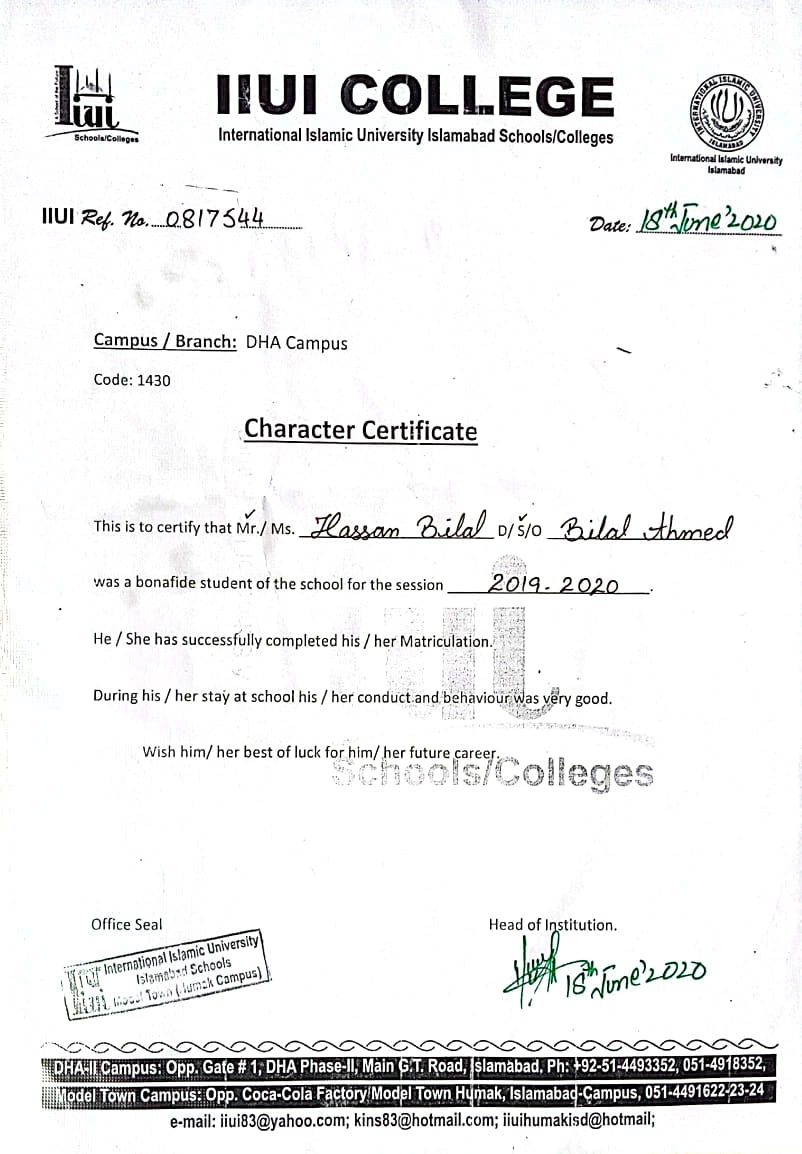 iiui
Schools/Colleges
IIUI COLLEGE
International Islamic University Islamabad Schools/Colleges
INTERNATIONAL ISLAMIC UNIVERSITY
ISLAMABAD
International Islamic University
Islamabad
IIUI Ref. No. 0817544
Date: 18th June'2020
Campus / Branch: DHA Campus
Code: 1430
Character Certificate
This is to certify that Mr./ Ms. Hassan Bilal D/ S/O Bilal Ahmed
was a bonafide student of the school for the session 2019-2020.
He / She has successfully completed his / her Matriculation.
During his / her stay at school his / her conduct and behaviour was very good.
Wish him/ her best of luck for him/ her future career.
Schools/Colleges
Office Seal
Head of Institution.
International Islamic University
Islamabad Schools
Model Town (Humak Campus)
18th June'2020
DHA-II Campus: Opp. Gate # 1, DHA Phase-II, Main G.T. Road, Islamabad, Ph: +92-51-4493352, 051-4918352,
Model Town Campus: Opp. Coca-Cola Factory Model Town Humak, Islamabad-Campus, 051-4491622-23-24
e-mail: iiui83@yahoo.com; kins83@hotmail.com; iiuihumakisd@hotmail;